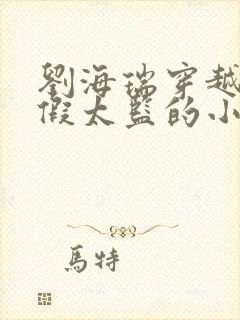 劉海瑞穿越
假太監的小
馬特